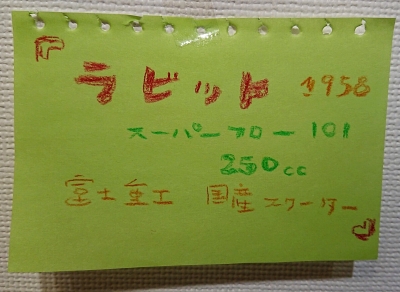 『ラビット 1958
スーパーフロー101
250cc
富士重工 国産スクーター』